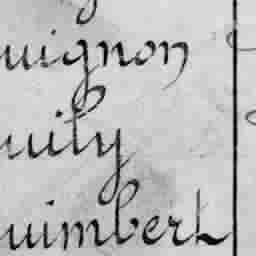 uignon
uily
uimbert